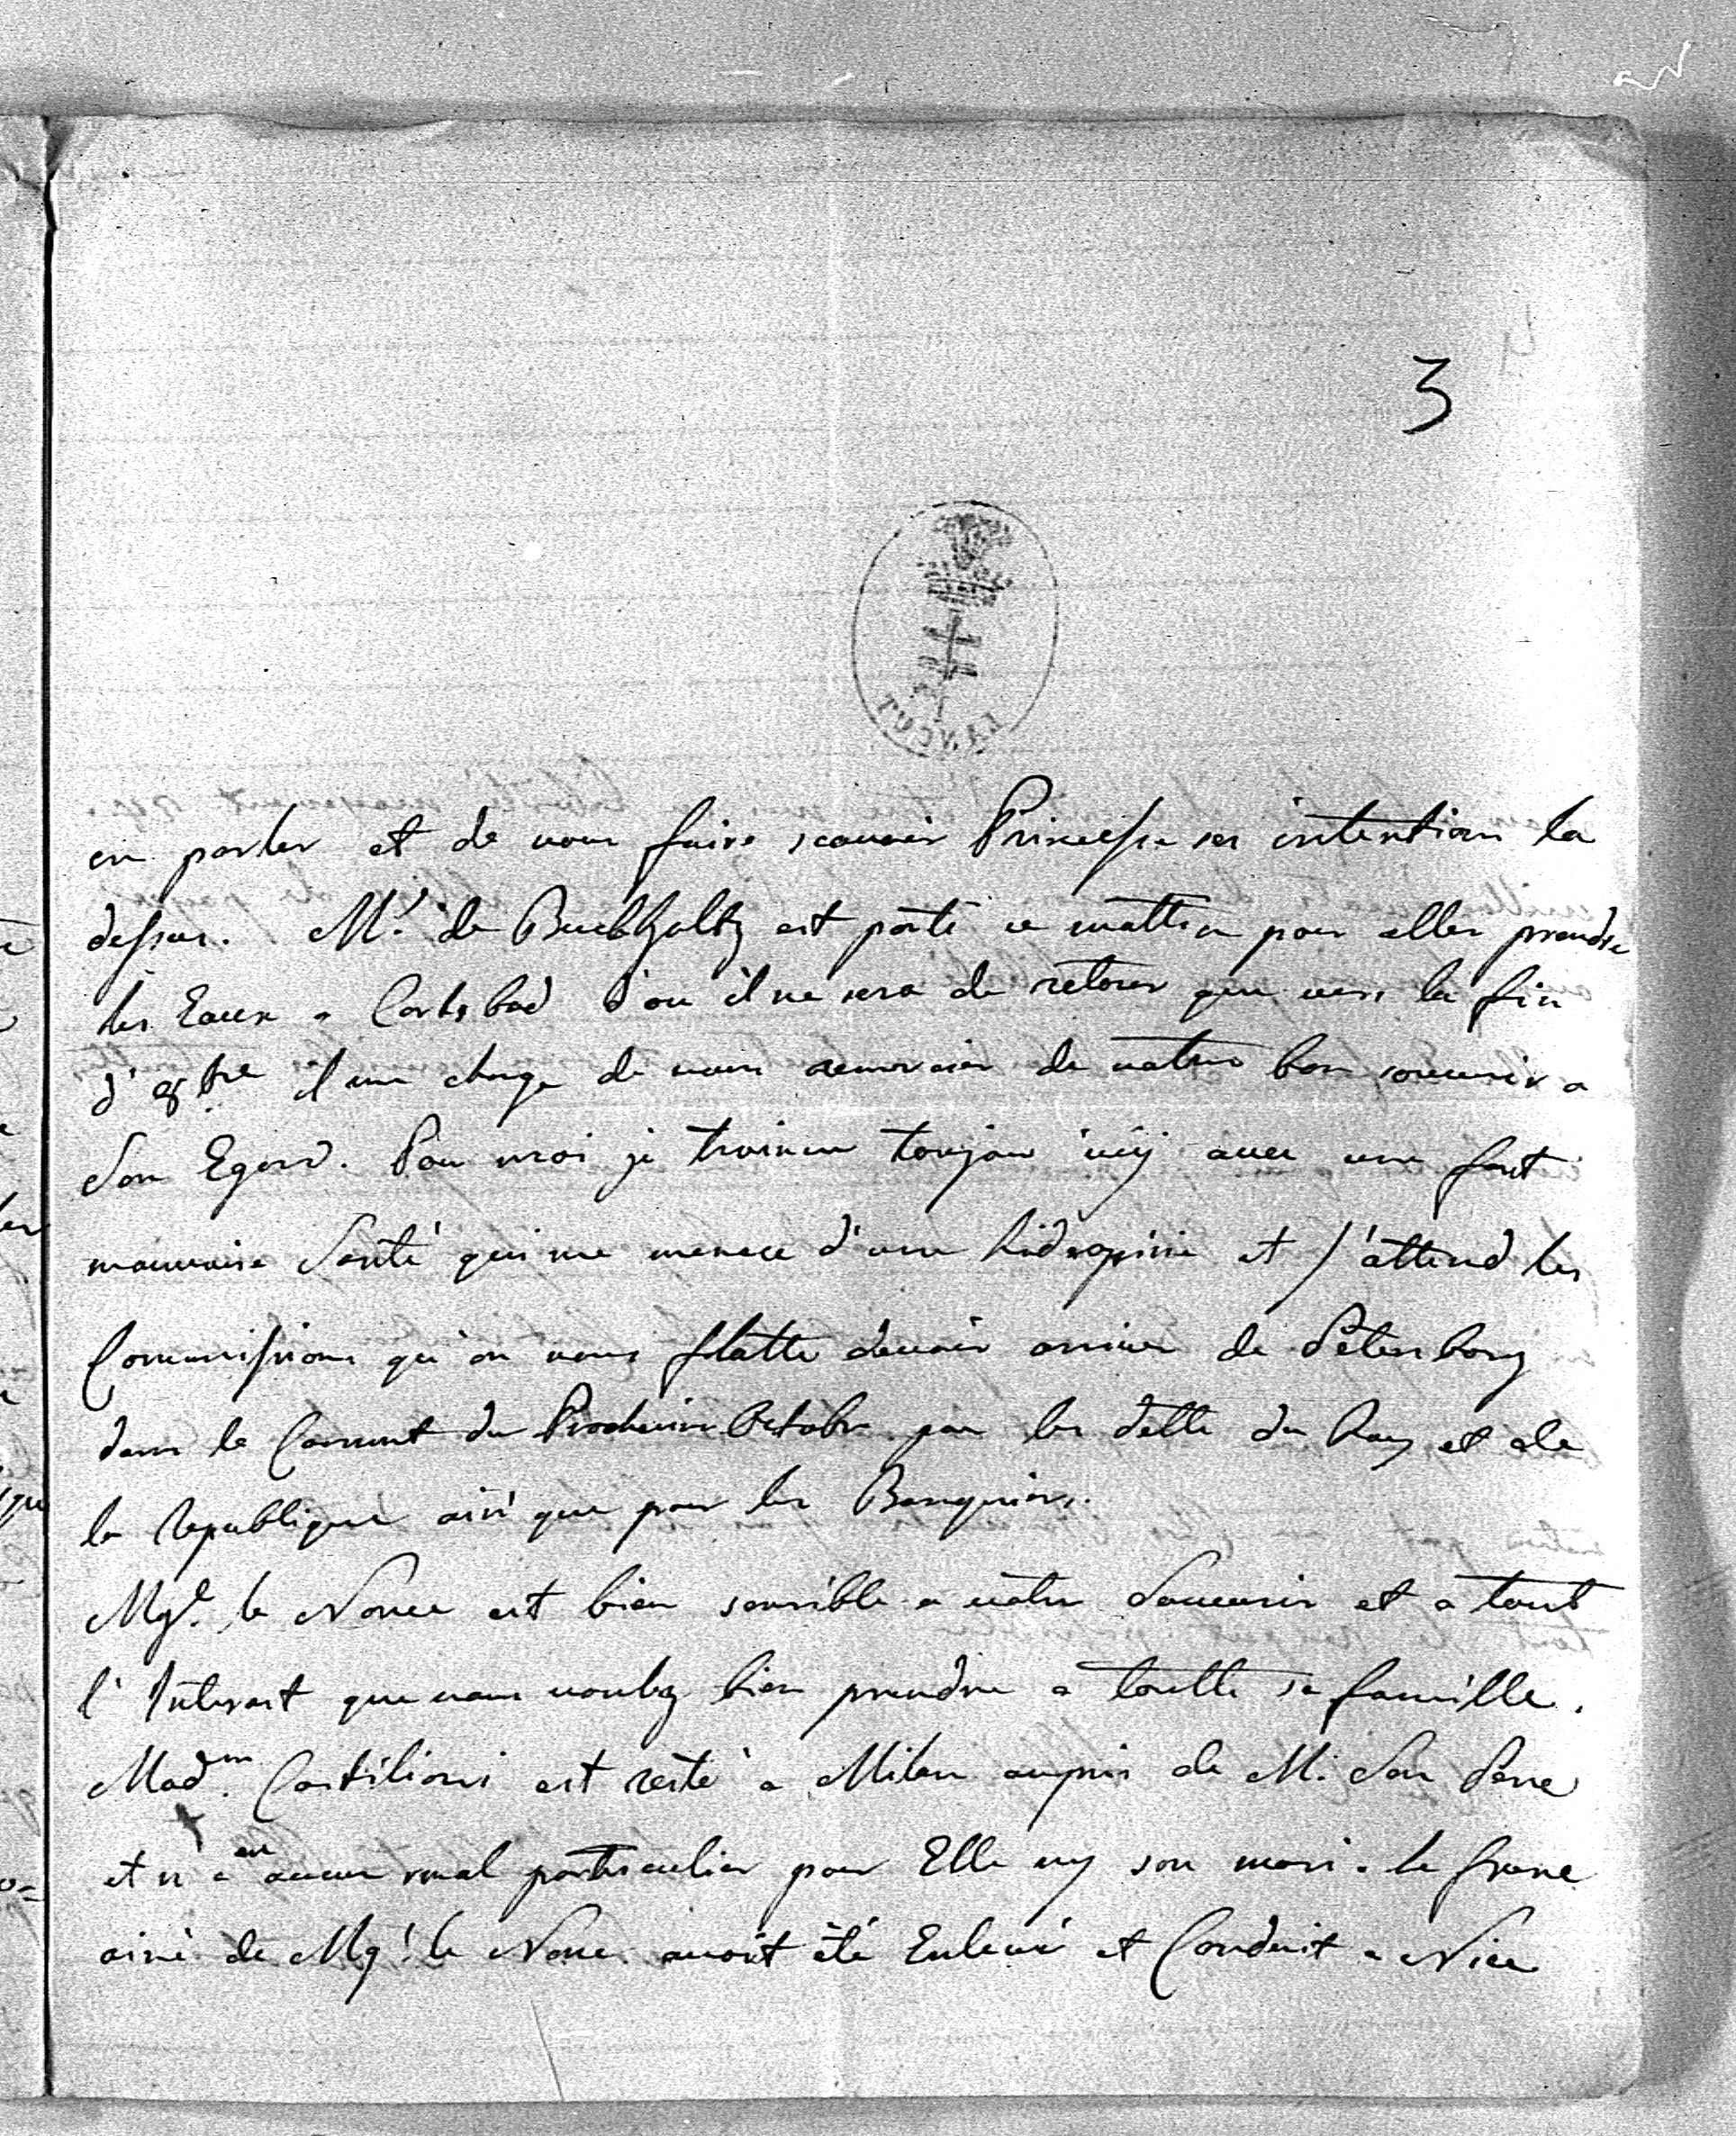 3
ŁAŃCUT
en parler et de vous faire scavoir Princesse ses intentions la
dessus. Mr. de Buchholtz est parti ce mattin pour aller prendre
les Eaux a Carlsbad d'ou il ne sera de retour que vers la fin
d'8bre il me charge de vous remercier de votre bon souvenir a
son Egard. Pour moi je traine toujour icÿ avec une fort
mauvaise Santé qui me menace d'une hidropisie et j'attend les
Commissions qu'on nous flatte devoir arriver de Petersbourg
dans le Courant du Prochain Octobre pour les dette du Roy et de
la Republique ainsi que pour les Banquiers.
Mgr. le Nonce est bien sensible a votre Souvenir et a tout
l'Interest que vous voulez bien prendre a toutte sa famille.
Madm. Castilioni est resté a Milan aupres de M. Son Pere
et n'a eu aucun mal particulier pour Elle ny son mari. le frere
ainé de Mgr. le Nonce avoit été Enlevé et Conduit a Nice